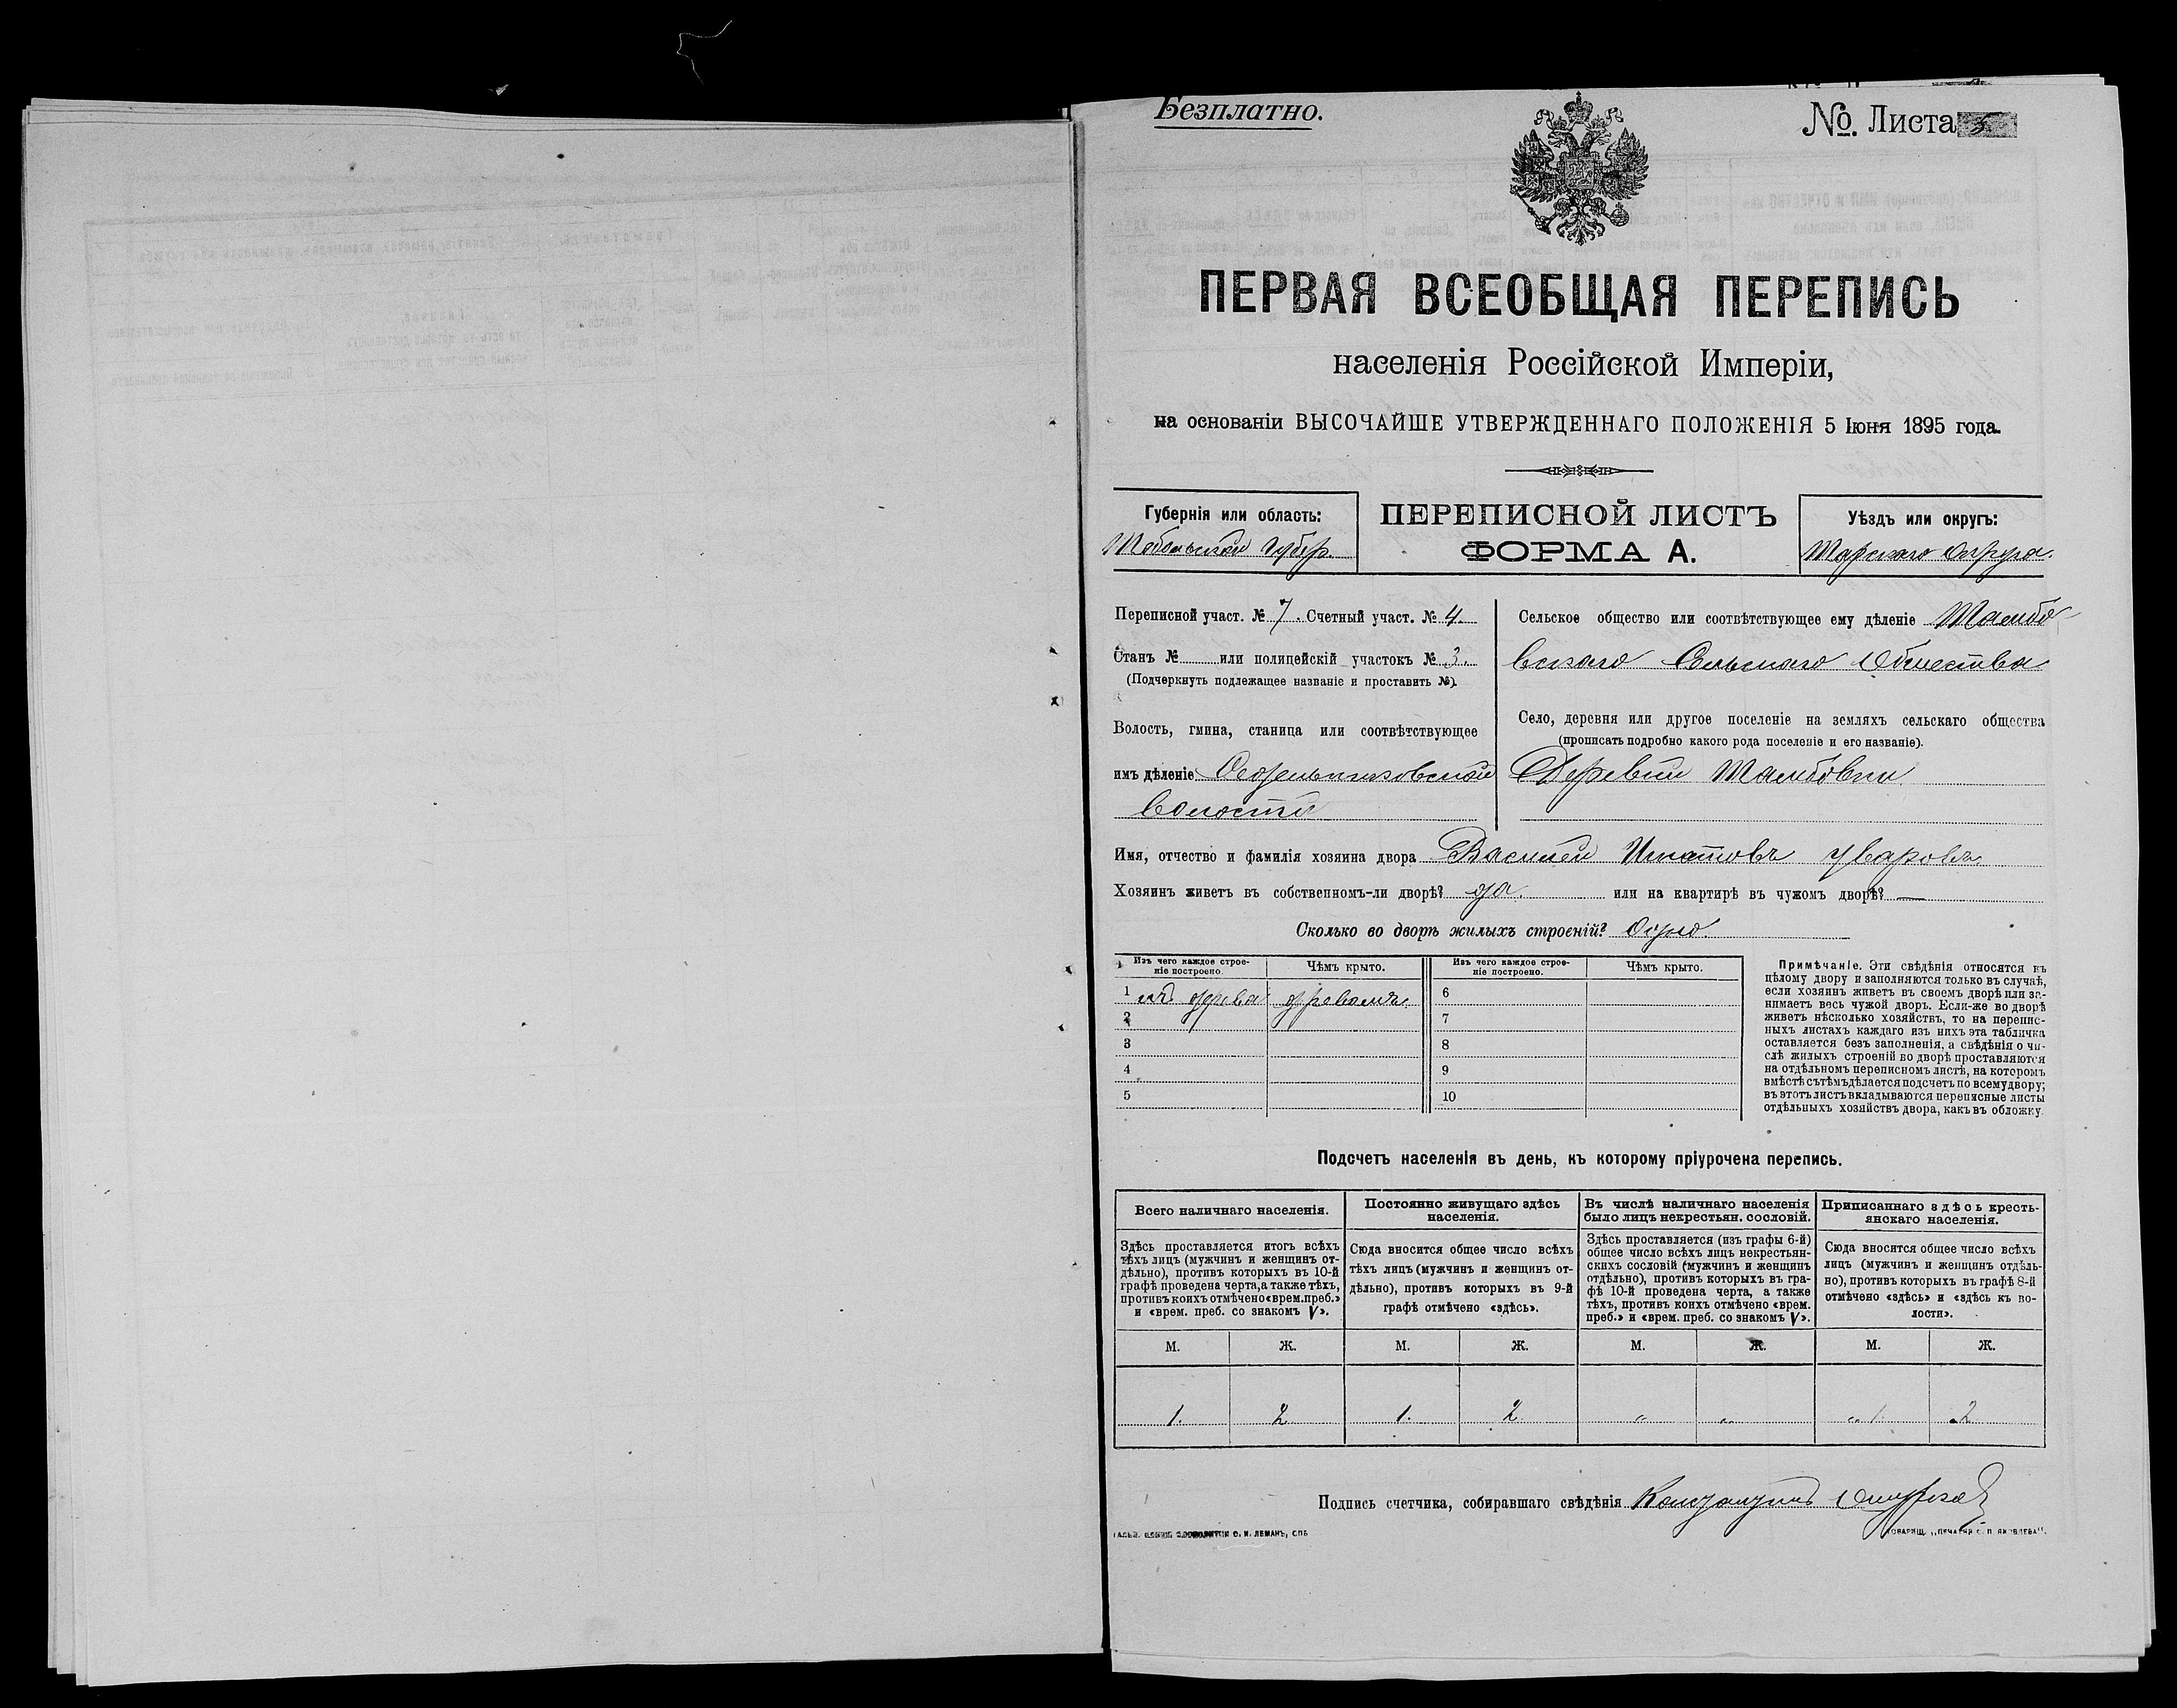 Безплатно.
№. Листа 5
ПЕРВАЯ ВСЕОБЩАЯ ПЕРЕПИСЬ
населенія Россійской Имперіи,
на основаніи ВЫСОЧАЙШЕ УТВЕРЖДЕННАГО ПОЛОЖЕНІЯ 5 Іюня 1895 года.
Губернія или область:
Тобольской Губер.
ПЕРЕПИСНОЙ ЛИСТЪ
ФОРМА А.
Уѣздъ или округъ:
Тарскаго Округа.
Переписной участ. № 7. Счетный участ. № 4.
Станъ № или полицейскій участокъ № 3.
(Подчеркнуть подлежащее названіе и проставить №).
Волость, гмина, станица или соотвѣтствующее
имъ дѣленіе
волости
Сельское общество или соотвѣтствующее ему дѣленіе Тамбо-
вскаго Сельскаго Общества
Село, деревня или другое поселеніе на земляхъ сельскаго общества
(прописать подробно какого рода поселеніе и его названіе).
Деревни Тамбовки
Имя, отчество и фамилія хозяина двора Василей Игнатовъ Уваровъ
Хозяинъ живетъ въ собственномъ-ли дворѣ? да. или на квартирѣ въ чужомъ дворѣ? —
Сколько во дворѣ жилыхъ строеній? Одно.
Изъ чего каждое строе-
ніе построено.
Чѣмъ крыто.
Изъ чего каждое строе-
ніе построено.
Чѣмъ крыто.
1 изъ дерева древомъ 6
2 7
3 8
4 9
5 10
Примѣчаніе. Эти свѣдѣнія относятся къ
цѣлому двору и заполняются только въ случаѣ,
если хозяинъ живетъ въ своемъ дворѣ или за-
нимаетъ весь чужой дворъ. Если-же во дворѣ
живетъ нѣсколько хозяйствъ, то на перепис-
ныхъ листахъ каждаго изъ нихъ эта табличка
оставляется безъ заполненія, а свѣдѣнія о чи-
слѣ жилыхъ строеній во дворѣ проставляются
на отдѣльномъ переписномъ листѣ, на которомъ
вмѣстѣ съ тѣмъ дѣлается подсчетъ по всему двору;
въ этотъ листъ вкладываются переписные листы
отдѣльныхъ хозяйствъ двора, какъ въ обложку.
Подсчетъ населенія въ день, къ которому пріурочена перепись.
Всего наличнаго населенія.
Здѣсь проставляется итогъ всѣхъ
тѣхъ лицъ (мужчинъ и женщинъ от-
дѣльно), противъ которыхъ въ 10-й
графѣ проведена черта, а также тѣхъ,
противъ коихъ отмѣчено «врем. преб.»
и «врем. преб. со знакомъ V».
Постоянно живущаго здѣсь
населенія.
Сюда вносится общее число всѣхъ
тѣхъ лицъ (мужчинъ и женщинъ от-
дѣльно), противъ которыхъ въ 9-й
графѣ отмѣчено «здѣсь».
Въ числѣ наличнаго населенія
было лицъ некрестьян. сословій.
Здѣсь проставляется (изъ графы 6-й)
общее число всѣхъ лицъ некрестьян-
скихъ сословій (мужчинъ и женщинъ
отдѣльно), противъ которыхъ въ гра-
фѣ 10-й проведена черта, а также
тѣхъ, противъ коихъ отмѣчено «врем.
преб.» и «врем. преб. со знакомъ V».
Приписаннаго здѣсь кресть-
янскаго населенія.
Сюда вносится общее число всѣхъ
лицъ (мужчинъ и женщинъ отдѣль-
но), противъ которыхъ въ графѣ 8-й
отмѣчено «здѣсь» и «здѣсь къ во-
лости».
М. Ж. М. Ж. М. Ж. М. Ж.
1. 2 1. 2 „ „ „ 1 „ 2
Подпись счетчика, собиравшаго свѣдѣнія
ТОВАРИЩ. „ПЕЧАТНЯ С. П. ЯКОВЛЕВА".